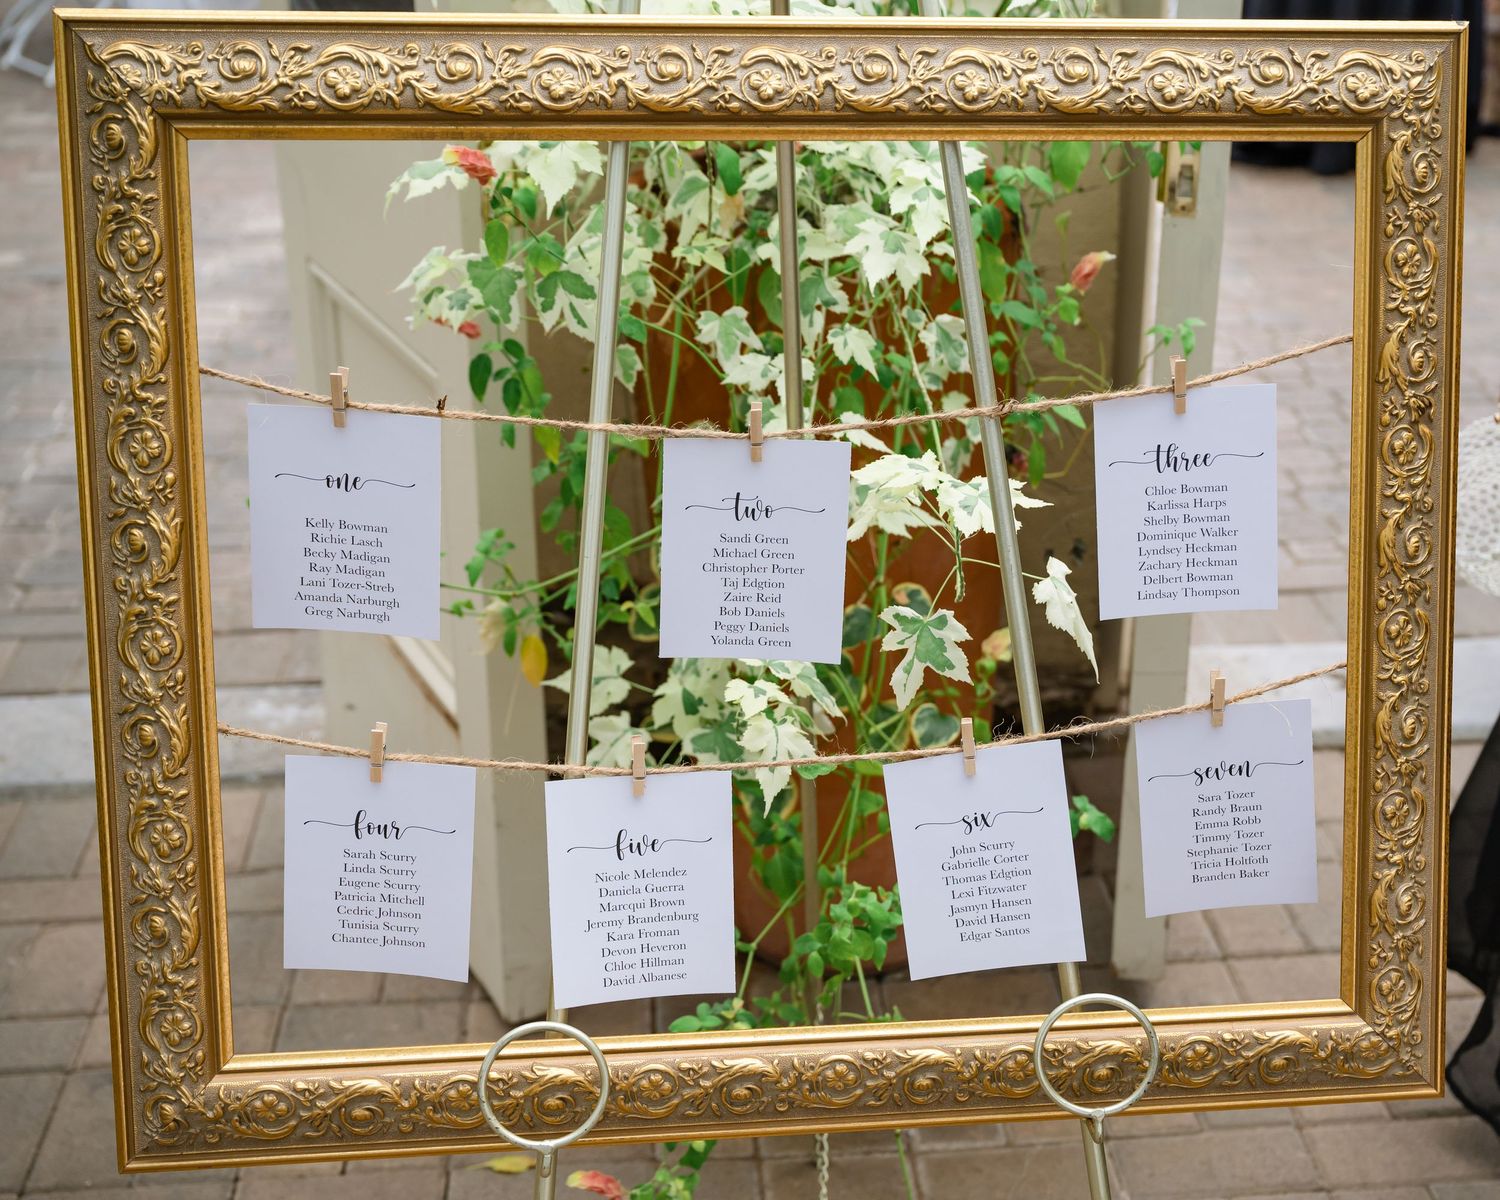 one
Kelly Bowman
Richie Lasch
Becky Madigan
Ray Madigan
Lani Tozer-Streb
Amanda Narburgh
Greg Narburgh
two
Sandi Green
Michael Green
Christopher Porter
Taj Edgtion
Zaire Reid
Bob Daniels
Peggy Daniels
Yolanda Green
three
Chloe Bowman
Karlissa Harps
Shelby Bowman
Dominique Walker
Lyndsey Heckman
Zachary Heckman
Delbert Bowman
Lindsay Thompson
four
Sarah Scurry
Linda Scurry
Eugene Scurry
Patricia Mitchell
Cedric Johnson
Tunisia Scurry
Chantee Johnson
five
Nicole Melendez
Daniela Guerra
Marcqui Brown
Jeremy Brandenburg
Kara Froman
Devon Heveron
Chloe Hillman
David Albanese
six
John Scurry
Gabrielle Corter
Thomas Edgtion
Lexi Fitzwater
Jasmyn Hansen
David Hansen
Edgar Santos
seven
Sara Tozer
Randy Braun
Emma Robb
Timmy Tozer
Stephanie Tozer
Tricia Holtfoth
Branden Baker